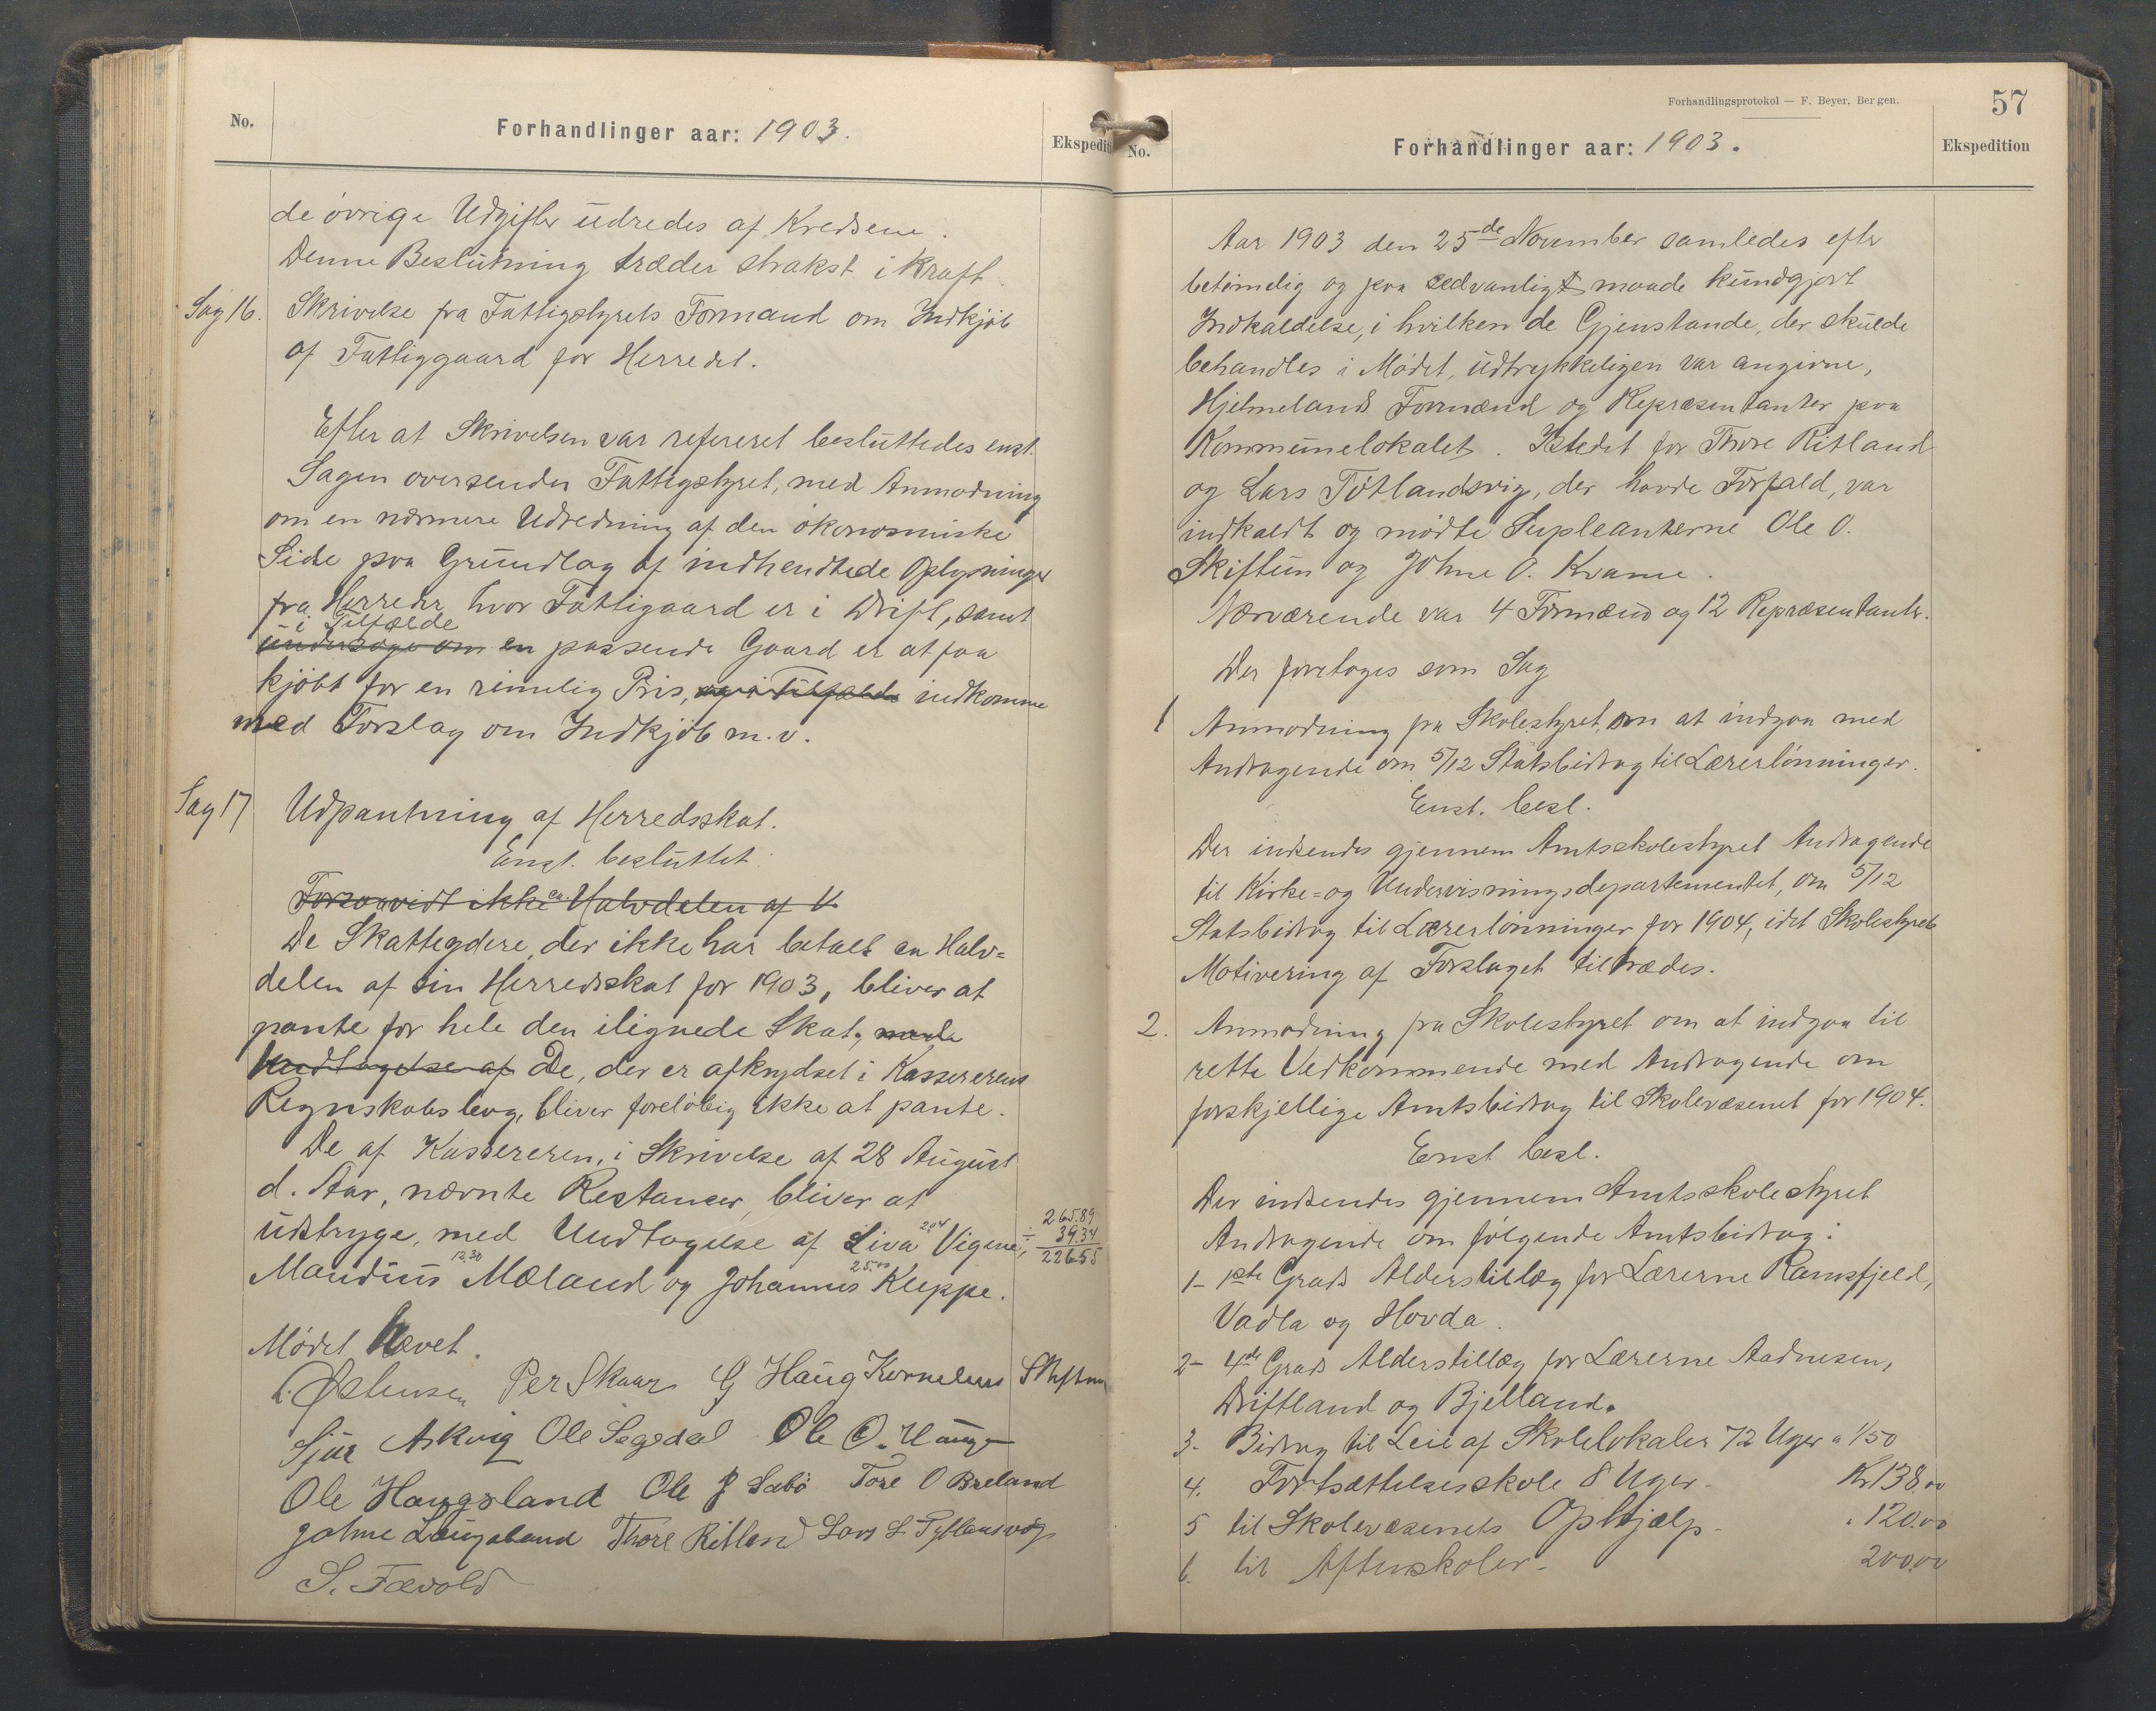 No.
Forhandlinger aar: 1903.
Ekspedit
de övrige Udgifter udredes af Kredsene.
Denne Beslutning træder strakst i Kraft.
Sag 16. Skrivelse fra Fattigstyrets Formand om Indkjöb
af Fattiggaard for Herredet.
Efter at Skrivelsen var refereret besluttedes enst.
Sagen oversendes Fattigstyret, med Anmodning
om en nærmere Udredning af den ökonomiske
Side paa Grundlag af indhendtede Oplysninger
fra Herreder hvor Fattigaard er i Drift, samt
i Tilfælde
undersöge om en passende Gaard er at faa
kjöbt for en rimelig Pris, og i Tilfælde indkomme
med Forslag om Indkjöb m.v.
Sag 17 Udpantning af Herredsskat.
Enst. besluttet:
Forsaavidt ikke en Halvdelen af
De Skatteydere, der ikke har betalt en Halv=
delen af sin Herredsskat for 1903, bliver at
pante for hele den ilignede Skat, med
Undtagelse af De, der er afkrydset i Kassererens
Regnskabsbog, bliver forelöbig ikke at pante.
De af Kassereren, i Skrivelse af 28 August
d. Aar, nævnte Restancer, bliver at
udstryge, med Undtagelse af Liva 204 Vigene,
265.89
÷ 39.34
226.55
Maudius 12,30 Mæland og Johannes 25.00 Kleppe.
Mödet hævet.
L. Östensen Per Skaar G Haug Kornelius Skiftun
Sjur Askvig Ole Segedal Ole O. Hauge
Ole Haugsland Ole J Sæbö Tore O Breland
Johne Laugaland Thore Ritland Lars L. Tytlandsvig
S. Fævold
Forhandlingsprotokol — F. Beyer, Bergen.
57
No.
Forhandlinger aar: 1903.
Ekspedition
Aar 1903 den 25de November samledes efter
betimelig og paa sedvanligt maade kundgjort
Indkaldelse, i hvilken de Gjenstande, der skulde
behandles i Mödet, udtrykkeligen var angivne,
Hjelmelands Formænd og Repræsentanter paa
Kommunelokalet. Istedet for Thore Ritland
og Lars Tötlandsvig, der havde Forfald, var
indkaldt og mödte Supleanterne Ole O.
Skiftun og Johne O. Kvame.
Nærværende var 4 Formænd og 12 Repræsentanter.
Der foretoges som Sag
1 Anmodning fra Skolestyret, om at indgaa med
Andragende om 5/12 Statsbidrag til Lærerlönninger.
Enst. besl.
Der indsendes gjennem Amtsskolestyret Andragende
til Kirke= og Undervisningsdepartementet, om 5/12
Statsbidrag til Lærerlönninger for 1904, idet Skolestyrets
Motivering af Forslaget tiltrædes.
2. Anmodning fra Skolestyret om at indgaa til
rette Vedkommende med Andragende om
forskjellige Amtsbidrag til Skolevæsenet for 1904.
Enst besl.
Der indsendes gjennem Amtsskolestyret
Andragende om fölgende Amtsbidrag:
1- 1ste Grads Alderstillæg for Lærerne Ramsfjeld,
Vadla og Hovda.
2- 4de Grads Alderstillæg for Lærerne Aadnesen,
Driftland og Bjelland.
3- Bidrag til Leie af Skolelokaler 72 Uger a 1/50
4. Fortsættelsesskole 8 Uger - Kr 138,00
5 til Skolevæsenets Ophjælp - " 120.00
6. til Aftenskoler - 200.00